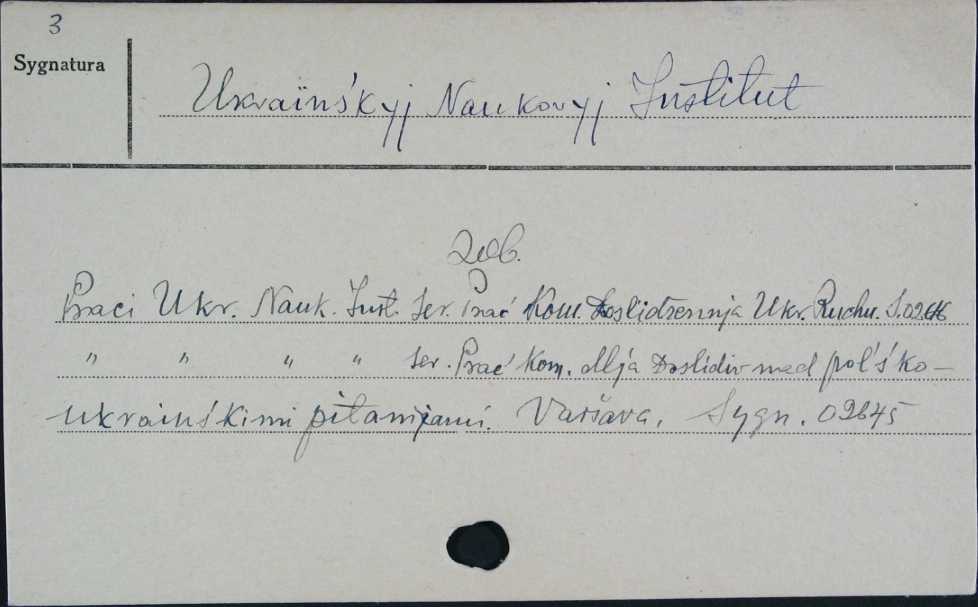 3
Sygnatura
Ukraïnśkyj Naukovyj Institut
Zob.
Praci Ukr. Nauk. Inst. Ser. Prać Kom. Doslidžennja Ukr. Ruchu. S.
" " " " Ser. Prać Kom. dlja Doslidiv nad polśko-
ukrainśkimi pitannjami. Varšava. Sygn. 02645